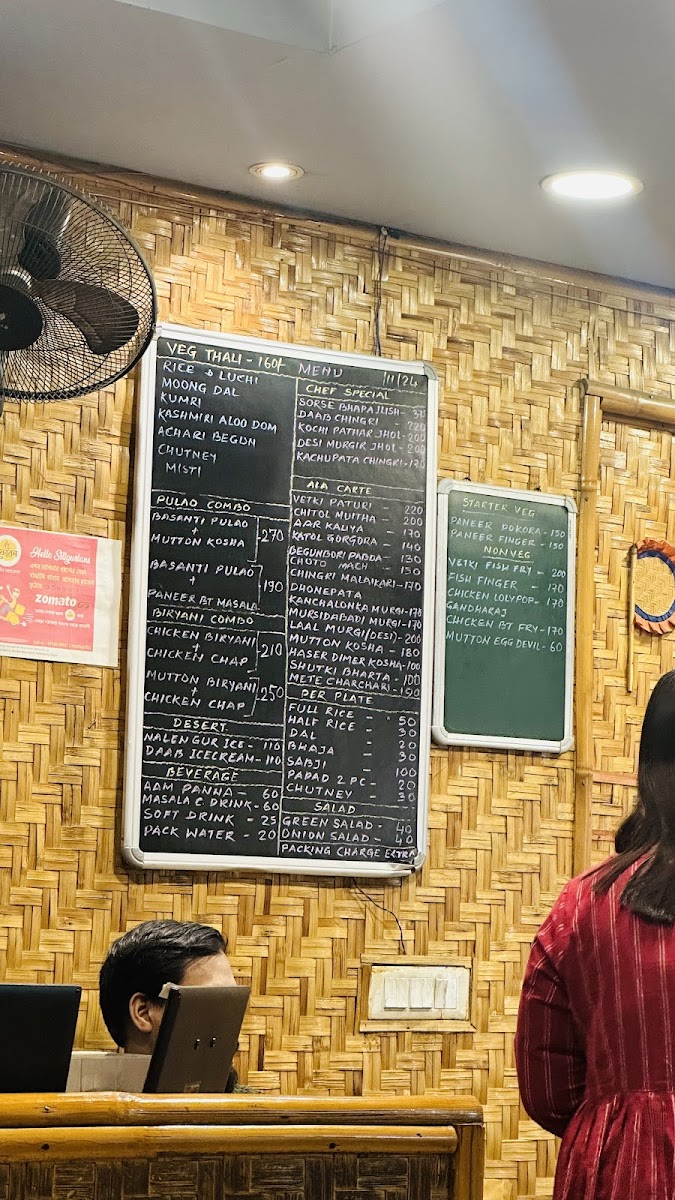 VEG THALI - 160/-
RICE & LUCHI
MOONG DAL
KUMRI
KASHMIRI ALOO DOM
ACHARI BEGUN
CHUTNEY
MISTI
PULAO COMBO
BASANTI PULAO
+
MUTTON KOSHA
270
BASANTI PULAO
+
PANEER BT MASALA
190
BIRYANI COMBO
CHICKEN BIRYANI
+
CHICKEN CHAP
210
MUTTON BIRYANI
+
CHICKEN CHAP
250
DESERT
NALEN GUR ICE - 110
DAAB ICECREAM - 110
BEVERAGE
AAM PANNA - 60
MASALA C DRINK - 60
SOFT DRINK - 25
PACK WATER - 20
MENU
11/24
CHEF SPECIAL
SORSE BHAPA ILISH -
DAAB CHINGRI 220
KOCHI PATHAR JHOL - 200
DESI MURGIR JHOL - 200
KACHUPATA CHINGRI - 170
ALA CARTE
VETKI PATURI - 220
CHITOL MUITHA - 200
AAR KALIYA - 170
KATOL GORGORA - 140
BEGUNBORI PABDA - 130
CHOTO MACH - 150
CHINGRI MALAIKARI - 170
DHONEPATA
KANCHALONKA MURGI - 170
MURSIDABADI MURGI - 170
LAAL MURGI (DESI) - 200
MUTTON KOSHA - 180
HASER DIMER KOSHA - 100
SHUTKI BHARTA - 100
METE CHARCHARI - 150
PER PLATE
FULL RICE - 50
HALF RICE - 30
DAL - 30
BHAJA - 20
SABJI - 30
PAPAD 2 PC - 20
CHUTNEY - 30
SALAD
GREEN SALAD - 40
ONION SALAD - 40
PACKING CHARGE EXTRA
STARTER VEG
PANEER POKORA - 150
PANEER FINGER - 150
NON VEG
VETKI FISH FRY - 200
FISH FINGER - 170
CHICKEN LOLYPOP - 170
GANDHARAJ
CHICKEN BT FRY - 170
MUTTON EGG DEVIL - 60
Hello Siligurians
zomato